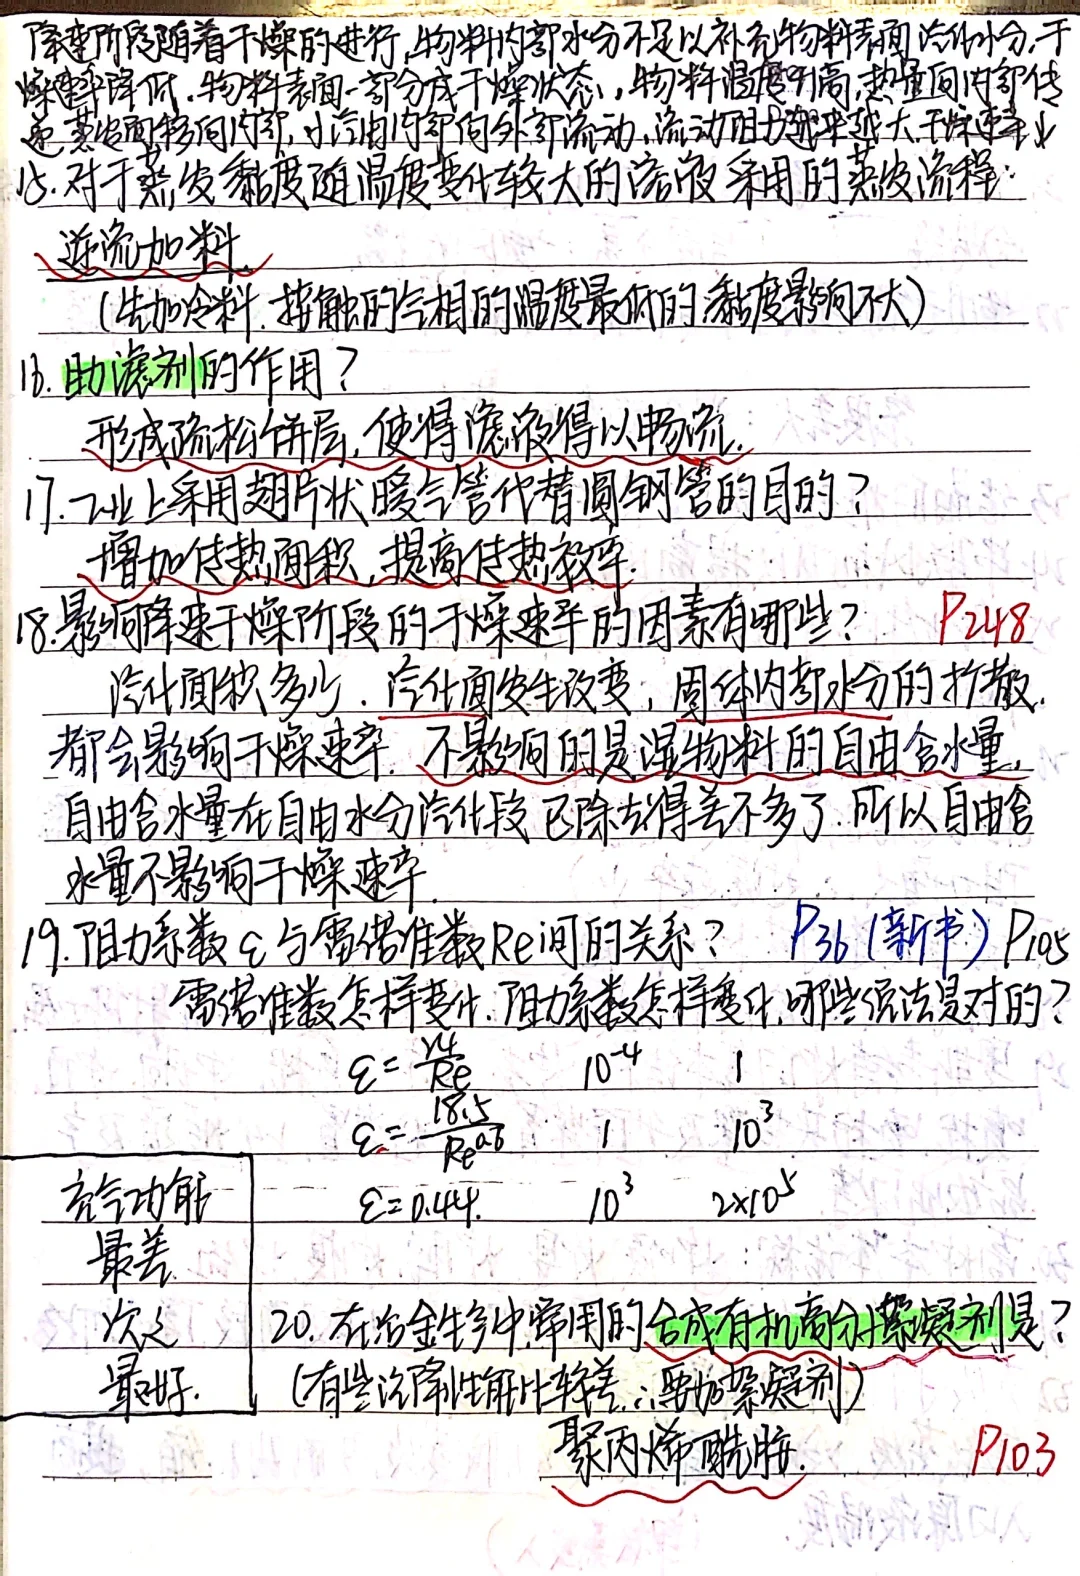 降速阶段随着干燥的进行,物料内部水分不足以补充物料表面汽化水分,干
燥速率降低.物料表面一部分成干燥状态,物料温度升高,热量向内部传
递,蒸发面移向内部,水汽由内部向外部流动,流动阻力越来越大,干燥速率
15.对于蒸发黏度随温度变化较大的溶液采用的蒸发流程:
逆流加料.
(先加冷料.接触的气相的温度最低的黏度影响不大)
16.助滤剂的作用?
形成疏松饼层,使得滤液得以畅流.
17.工业上采用翅片状暖气管代替圆钢管的目的?
增加传热面积,提高传热效率.
18.影响降速干燥阶段的干燥速率的因素有哪些? P248
汽化面积多少.汽化面发生改变,固体内部水分的扩散.
都会影响干燥速率.不影响的是湿物料的自由含水量,
自由含水量在自由水分汽化段已除去得差不多了.所以自由含
水量不影响干燥速率.
19.阻力系数ε与雷诺准数Re间的关系? P36(新书) P105
雷诺准数怎样变化.阻力系数怎样变化,哪些说法是对的?
ε=24/Re 10⁻⁴ 1
ε=18.5/Re^0.6 1 10³
ε=0.44. 10³ 2×10⁵
充气功能
最差.
次之
最好.
20.在冶金生产中常用的合成有机高分子絮凝剂是?
(有些沉降性能比较差.∴要加絮凝剂)
聚丙烯酰胺. P103